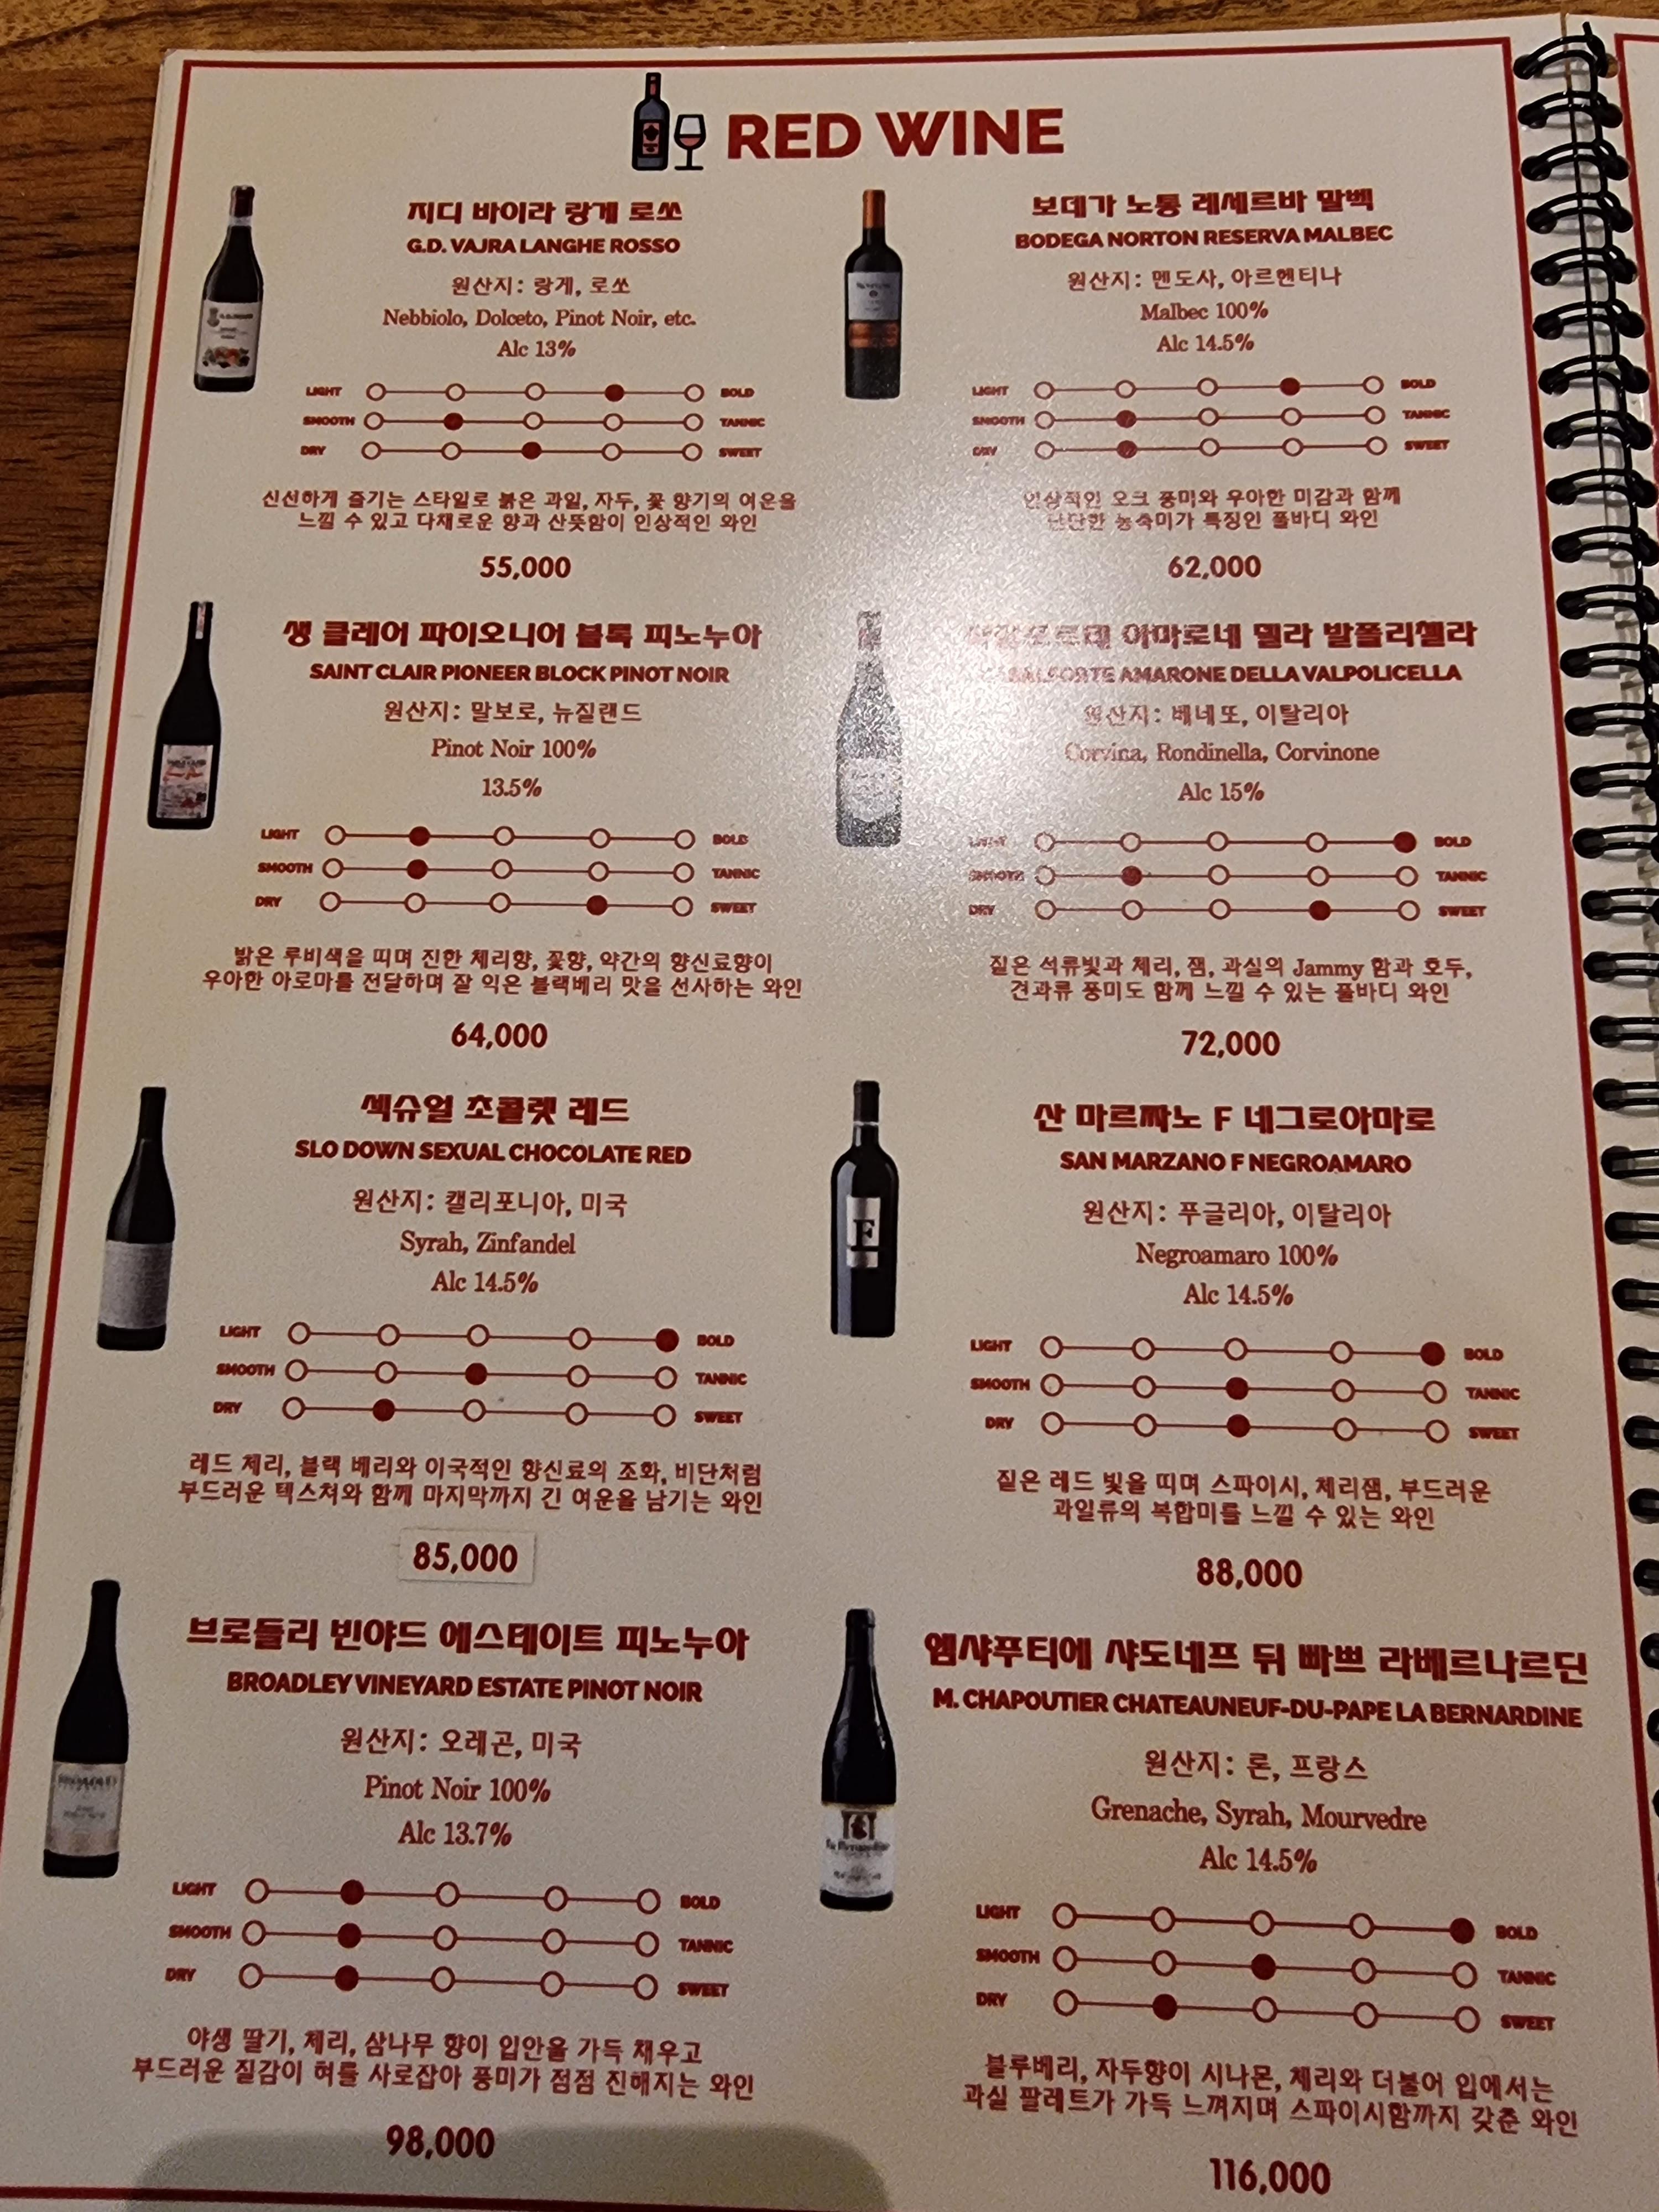 RED WINE
지디 바이라 랑게 로쏘
G.D. VAJRA LANGHE ROSSO
원산지: 랑게, 로쏘
Nebbiolo, Dolceto, Pinot Noir, etc.
Alc 13%
LIGHT BOLD
SMOOTH TANNIC
DRY SWEET
신선하게 즐기는 스타일로 붉은 과일, 자두, 꽃 향기의 여운을
느낄 수 있고 다채로운 향과 산뜻함이 인상적인 와인
55,000
보데가 노통 레세르바 말벡
BODEGA NORTON RESERVA MALBEC
원산지: 멘도사, 아르헨티나
Malbec 100%
Alc 14.5%
LIGHT BOLD
SMOOTH TANNIC
DRY SWEET
인상적인 오크 풍미와 우아한 미감과 함께
단단한 농축미가 특징인 풀바디 와인
62,000
생 클레어 파이오니어 블록 피노누아
SAINT CLAIR PIONEER BLOCK PINOT NOIR
원산지: 말보로, 뉴질랜드
Pinot Noir 100%
13.5%
LIGHT BOLD
SMOOTH TANNIC
DRY SWEET
밝은 루비색을 띠며 진한 체리향, 꽃향, 약간의 향신료향이
우아한 아로마를 전달하며 잘 익은 블랙베리 맛을 선사하는 와인
64,000
아마로네 델라 발폴리첼라
AMARONE DELLA VALPOLICELLA
원산지: 베네또, 이탈리아
Corvina, Rondinella, Corvinone
Alc 15%
LIGHT BOLD
SMOOTH TANNIC
DRY SWEET
짙은 석류빛과 체리, 잼, 과실의 Jammy 함과 호두,
견과류 풍미도 함께 느낄 수 있는 풀바디 와인
72,000
섹슈얼 초콜렛 레드
SLO DOWN SEXUAL CHOCOLATE RED
원산지: 캘리포니아, 미국
Syrah, Zinfandel
Alc 14.5%
LIGHT BOLD
SMOOTH TANNIC
DRY SWEET
레드 체리, 블랙 베리와 이국적인 향신료의 조화, 비단처럼
부드러운 텍스쳐와 함께 마지막까지 긴 여운을 남기는 와인
85,000
산 마르짜노 F 네그로아마로
SAN MARZANO F NEGROAMARO
원산지: 푸글리아, 이탈리아
Negroamaro 100%
Alc 14.5%
F
LIGHT BOLD
SMOOTH TANNIC
DRY SWEET
짙은 레드 빛을 띠며 스파이시, 체리잼, 부드러운
과일류의 복합미를 느낄 수 있는 와인
88,000
브로들리 빈야드 에스테이트 피노누아
BROADLEY VINEYARD ESTATE PINOT NOIR
원산지: 오레곤, 미국
Pinot Noir 100%
Alc 13.7%
LIGHT BOLD
SMOOTH TANNIC
DRY SWEET
야생 딸기, 체리, 삼나무 향이 입안을 가득 채우고
부드러운 질감이 혀를 사로잡아 풍미가 점점 진해지는 와인
98,000
엠샤푸티에 샤도네프 뒤 빠쁘 라베르나르딘
M. CHAPOUTIER CHATEAUNEUF-DU-PAPE LA BERNARDINE
원산지: 론, 프랑스
Grenache, Syrah, Mourvedre
Alc 14.5%
LIGHT BOLD
SMOOTH TANNIC
DRY SWEET
블루베리, 자두향이 시나몬, 체리와 더불어 입에서는
과실 팔레트가 가득 느껴지며 스파이시함까지 갖춘 와인
116,000